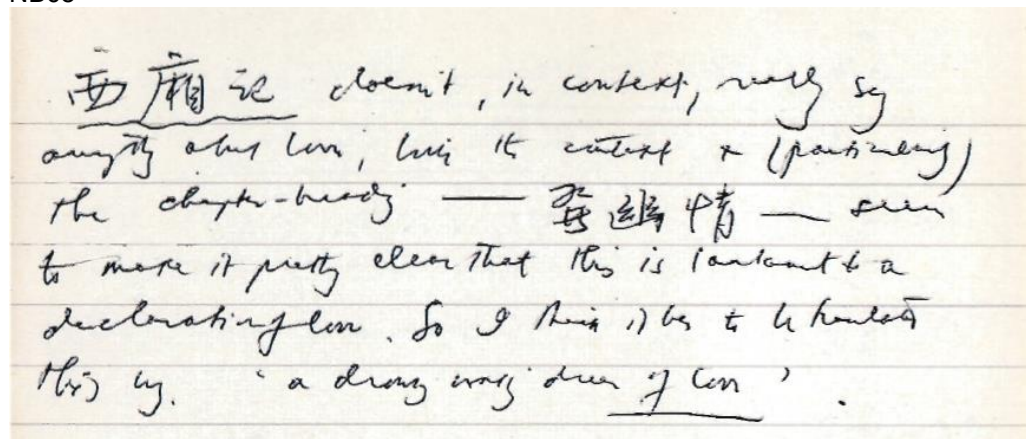 西廂记 doesn't, in context, really say
anything about love, but the context & (particularly)
the chapter-heading —— 發幽情 — seem
to make it pretty clear that this is tantamount to a
declaration of love. So I think it has to be translated
this way. 'a drowsy waking dream of love'.